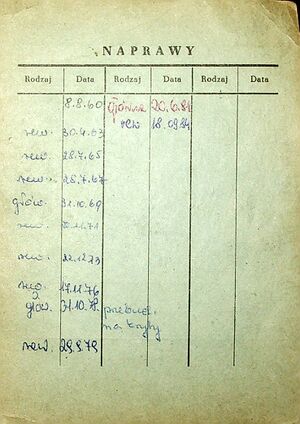 NAPRAWY
Rodzaj Data Rodzaj Data Rodzaj Data
8.8.60 główna 20.6.81
rew. 30.4.63 rew 18.09.84
rew. 28.7.65
rew. 28.7.67
głów. 31.10.69
rew.
rew. 12.12.73
rew. 17.11.76
głów. 31.10.78. przebud.
na kryty
rew. 29.9.79